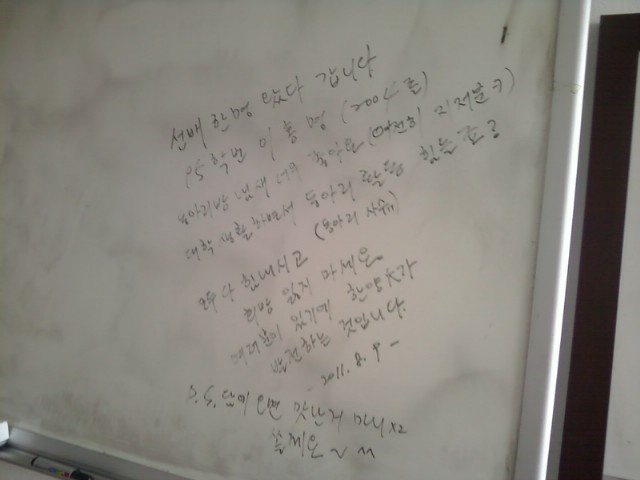 선배 한명 왔다 갑니다
95 학번 이홍명 (2004 졸)
동아리방 냄새 너무 좋아요 (여전히 지저분 ㅋ)
대학 생활 하면서 동아리 활동 힘들죠?
(동아리 사수)
모두 다 힘내시고
희망 잃지 마세요.
여러분이 있기에 한양大가
발전하는 것입니다.
- 2011. 8. 9 -
P.S. 담에 오면 맛난거 마니 x2
줄께요 ~ ^^